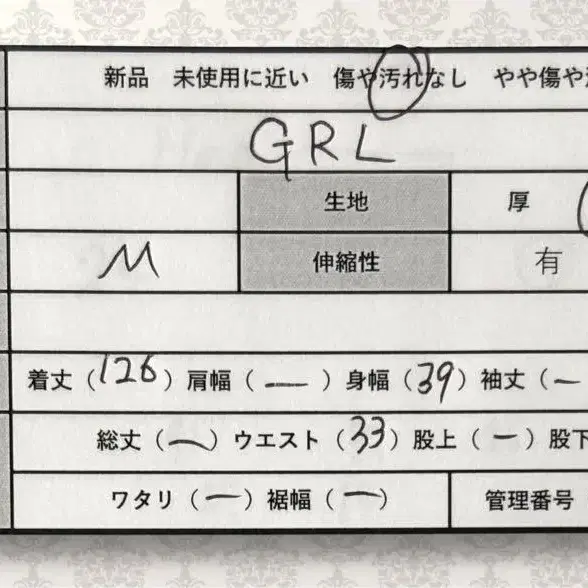 新品 未使用に近い 傷や汚れなし やや傷や
GRL
生地 厚
M 伸縮性 有
着丈（126）肩幅（—）身幅（39）袖丈（—
総丈（—）ウエスト（33）股上（—）股下
ワタリ（—）裾幅（—） 管理番号